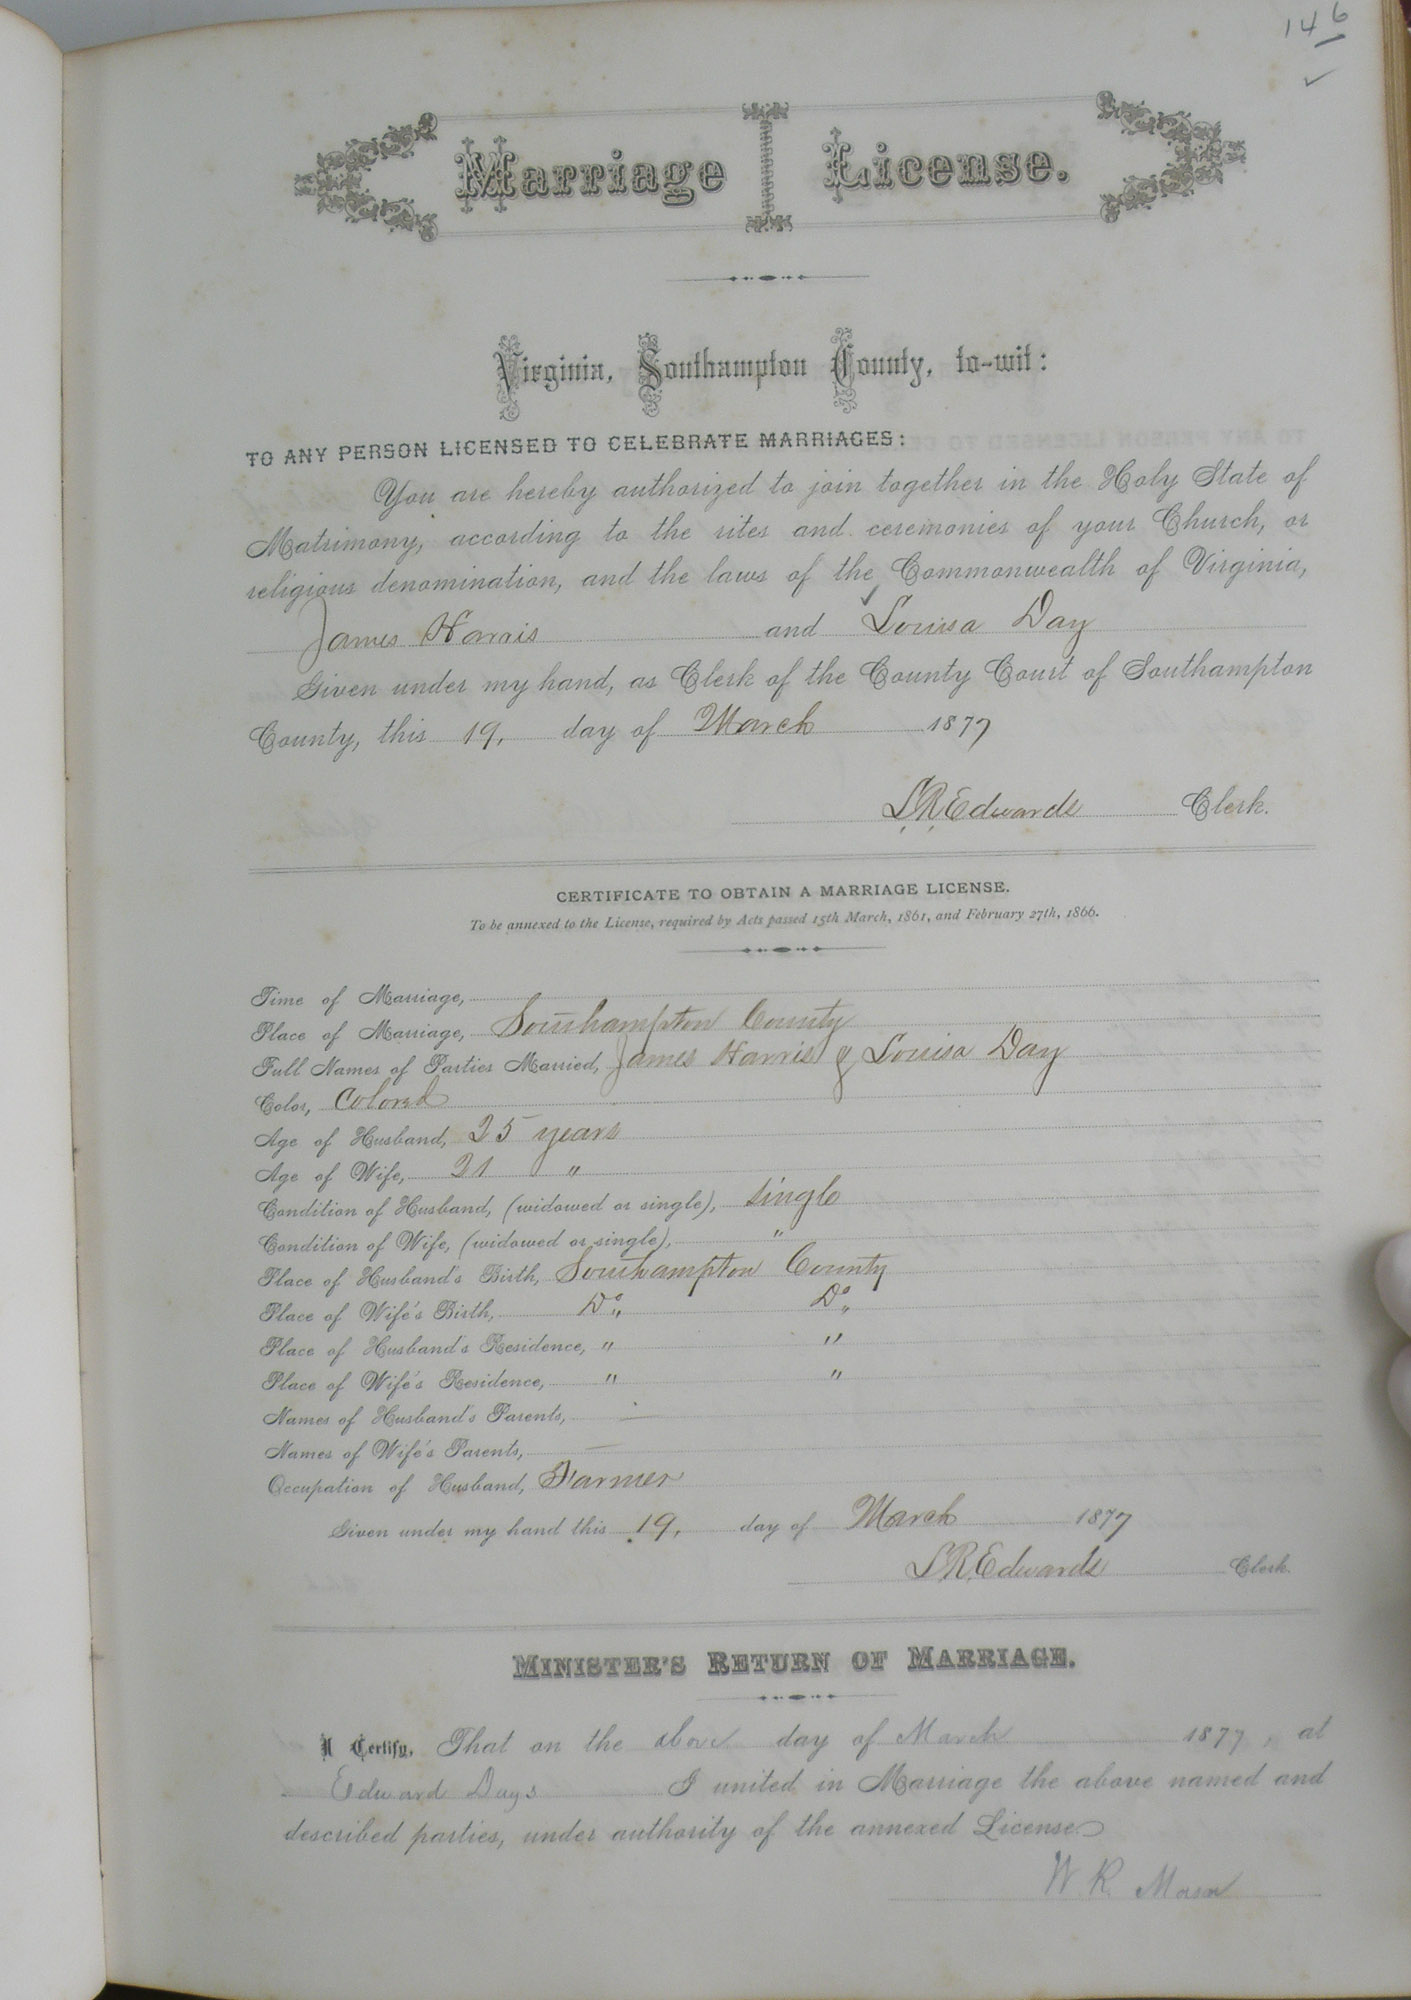 146
Marriage License.
Virginia, Southampton County, to-wit:
TO ANY PERSON LICENSED TO CELEBRATE MARRIAGES:
You are hereby authorized to join together in the Holy State of
Matrimony, according to the rites and ceremonies of your Church, or
religious denomination, and the laws of the Commonwealth of Virginia,
James Harris and Louisa Day
Given under my hand, as Clerk of the County Court of Southampton
County, this 19, day of March 1877
L.R. Edwards Clerk.
CERTIFICATE TO OBTAIN A MARRIAGE LICENSE.
To be annexed to the License, required by Acts passed 15th March, 1861, and February 27th, 1866.
Time of Marriage,
Place of Marriage, Southampton County
Full Names of Parties Married, James Harris & Louisa Day
Color, Colored
Age of Husband, 25 years
Age of Wife, 21 "
Condition of Husband, (widowed or single), single
Condition of Wife, (widowed or single), "
Place of Husband's Birth, Southampton County
Place of Wife's Birth, Do. Do.
Place of Husband's Residence, " "
Place of Wife's Residence, " "
Names of Husband's Parents, —
Names of Wife's Parents, —
Occupation of Husband, Farmer
Given under my hand this 19, day of March 1877
L.R. Edwards Clerk.
MINISTER'S RETURN OF MARRIAGE.
I Certify, That on the above day of March 1877, at
Edward Days I united in Marriage the above named and
described parties, under authority of the annexed License.
W R Mason